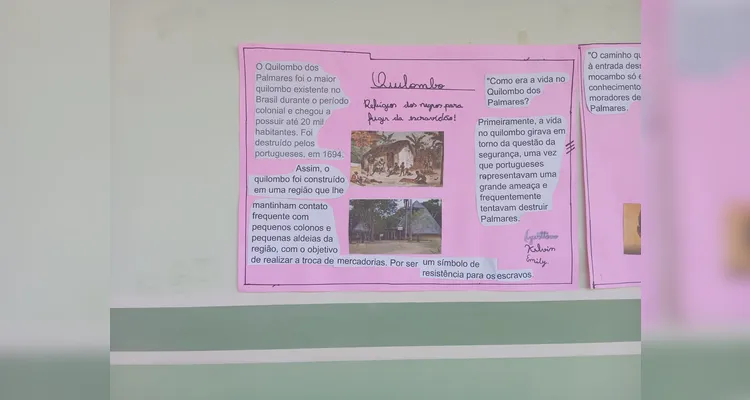 O Quilombo dos
Palmares foi o maior
quilombo existente no
Brasil durante o período
colonial e chegou a
possuir até 20 mil
habitantes. Foi
destruído pelos
portugueses, em 1694.
Assim, o
quilombo foi construído
em uma região que lhe
mantinham contato
frequente com
pequenos colonos e
pequenas aldeias da
região, com o objetivo
de realizar a troca de mercadorias. Por ser
um símbolo de
resistência para os escravos.
Quilombo
Refúgios dos negros para
fugir da escravidão!
"Como era a vida no
Quilombo dos
Palmares?
Primeiramente, a vida
no quilombo girava em
torno da questão da
segurança, uma vez
que portugueses
representavam uma
grande ameaça e
frequentemente
tentavam destruir
Palmares.
Kelvin
Emily
"O caminho
à entrada
mocambo só
conhecimento
moradores de
Palmares.